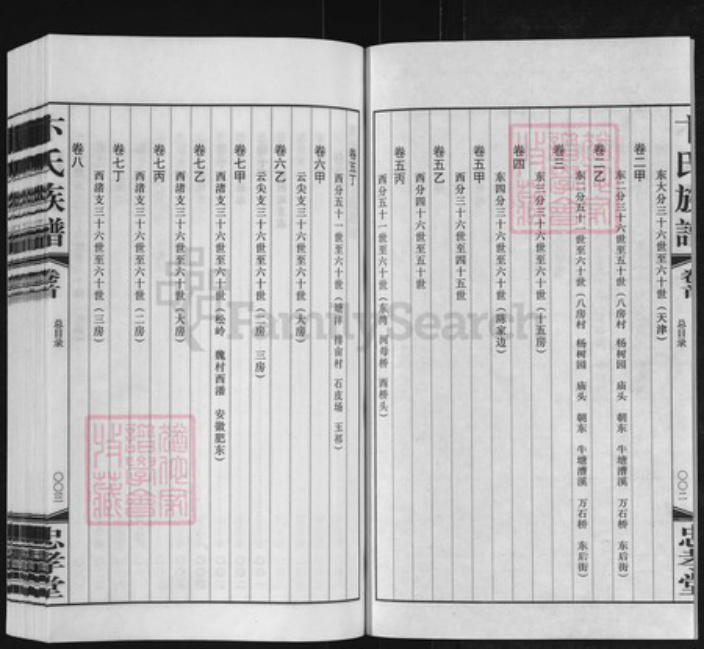 卷二甲
东大分三十六世至六十世（天津）
卷二乙
东二分三十六世至五十世（八房村 杨树园 庙头 朝东 牛塘漕溪 万石桥 东后街）
东二分五十一世至六十世（八房村 杨树园 庙头 朝东 牛塘漕溪 万石桥 东后街）
卷三
东三分三十六世至六十世（十五房）
卷四
东四分三十六世至六十世（蒋家边）
卷五甲
西分三十六世至四十五世
卷五乙
西分四十六世至五十世
卷五丙
西分五十一世至六十世（东湾 河母桥 西桥头）
总目录
〇〇二
忠孝堂
卷五丁
西分五十一世至六十世（塘洋 排亩村 石皮场 王祁）
卷六甲
云尖支三十六世至六十世（大房）
卷六乙
云尖支三十六世至六十世（二房 三房）
卷七甲
西渚支三十六世至六十世（松岭 魏村西潘 安徽肥东）
卷七乙
西渚支三十六世至六十世（大房）
卷七丙
西渚支三十六世至六十世（二房）
卷七丁
西渚支三十六世至六十世（三房）
卷八
卞氏族譜
卷首
总目录
〇〇三
忠孝堂
FamilySearch